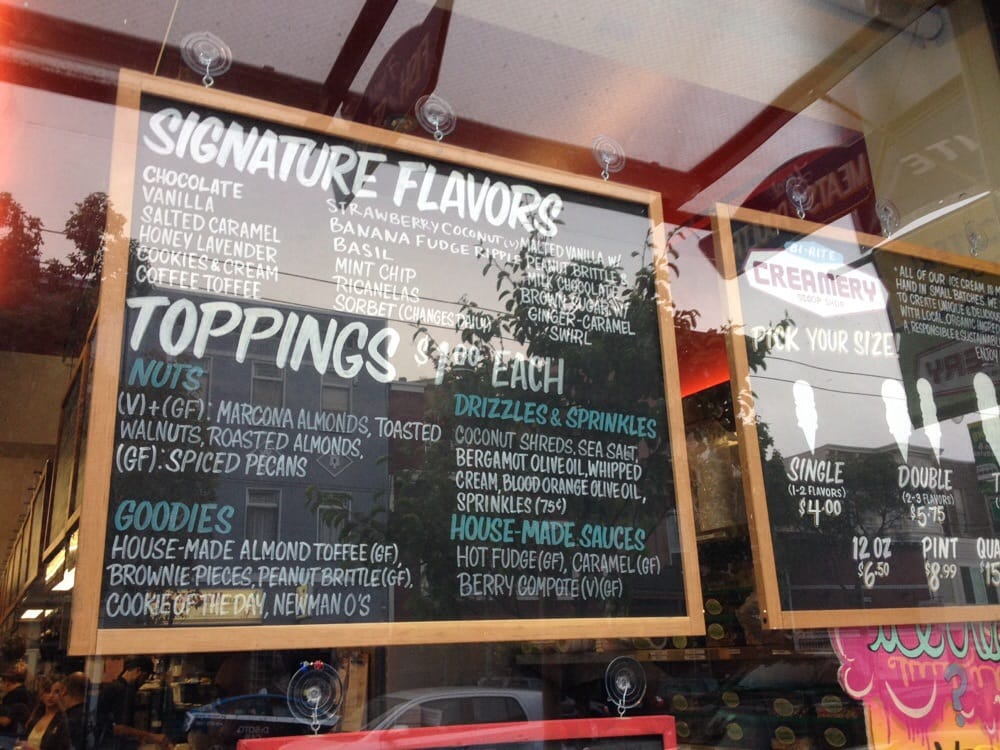 SIGNATURE FLAVORS
CHOCOLATE
VANILLA
SALTED CARAMEL
HONEY LAVENDER
COOKIES & CREAM
COFFEE TOFFEE
STRAWBERRY COCONUT (V)
BANANA FUDGE RIPPLE
BASIL
MINT CHIP
RICANELAS
SORBET (CHANGES DAILY)
MALTED VANILLA W/
PEANUT BRITTLE &
MILK CHOCOLATE
BROWN SUGAR W/
GINGER-CARAMEL
SWIRL
TOPPINGS $1.00 EACH
NUTS
(V)+(GF): MARCONA ALMONDS, TOASTED
WALNUTS, ROASTED ALMONDS,
(GF): SPICED PECANS
GOODIES
HOUSE-MADE ALMOND TOFFEE (GF),
BROWNIE PIECES, PEANUT BRITTLE (GF),
COOKIE OF THE DAY, NEWMAN O'S
DRIZZLES & SPRINKLES
COCONUT SHREDS, SEA SALT,
BERGAMOT OLIVE OIL, WHIPPED
CREAM, BLOOD ORANGE OLIVE OIL,
SPRINKLES (75¢)
HOUSE-MADE SAUCES
HOT FUDGE (GF), CARAMEL (GF)
BERRY COMPOTE (V)(GF)
BI-RITE
CREAMERY
SCOOP SHOP
* ALL OF OUR ICE CREAM IS
HAND IN SMALL BATCHES. WE
TO CREATE UNIQUE & DELICIOUS
WITH LOCAL, ORGANIC
A RESPONSIBLE & SUSTAINABLE
ENJOY
PICK YOUR SIZE!
SINGLE
(1-2 FLAVORS)
$4.00
DOUBLE
(2-3 FLAVORS)
$5.75
12 OZ
$6.50
PINT
$8.99